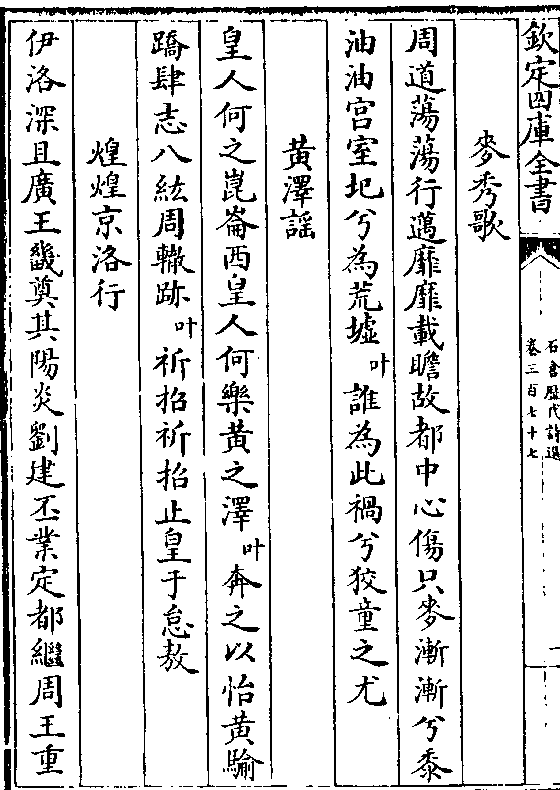 欽定四庫全書
石倉歷代詩選
卷三百七十七
麥秀歌
周道蕩蕩行邁靡靡載瞻故都中心傷只麥漸漸兮黍
油油宮室圮兮為荒墟叶誰為此禍兮狡童之尤
黃澤謡
皇人何之崑崙西皇人何樂黃之澤叶奔之以怡黃騟
蹻肆志八紘周轍跡叶祈招祈招止皇于怠敖
煌煌京洛行
伊洛深且廣王畿奠其陽炎劉建丕業定都繼周王重